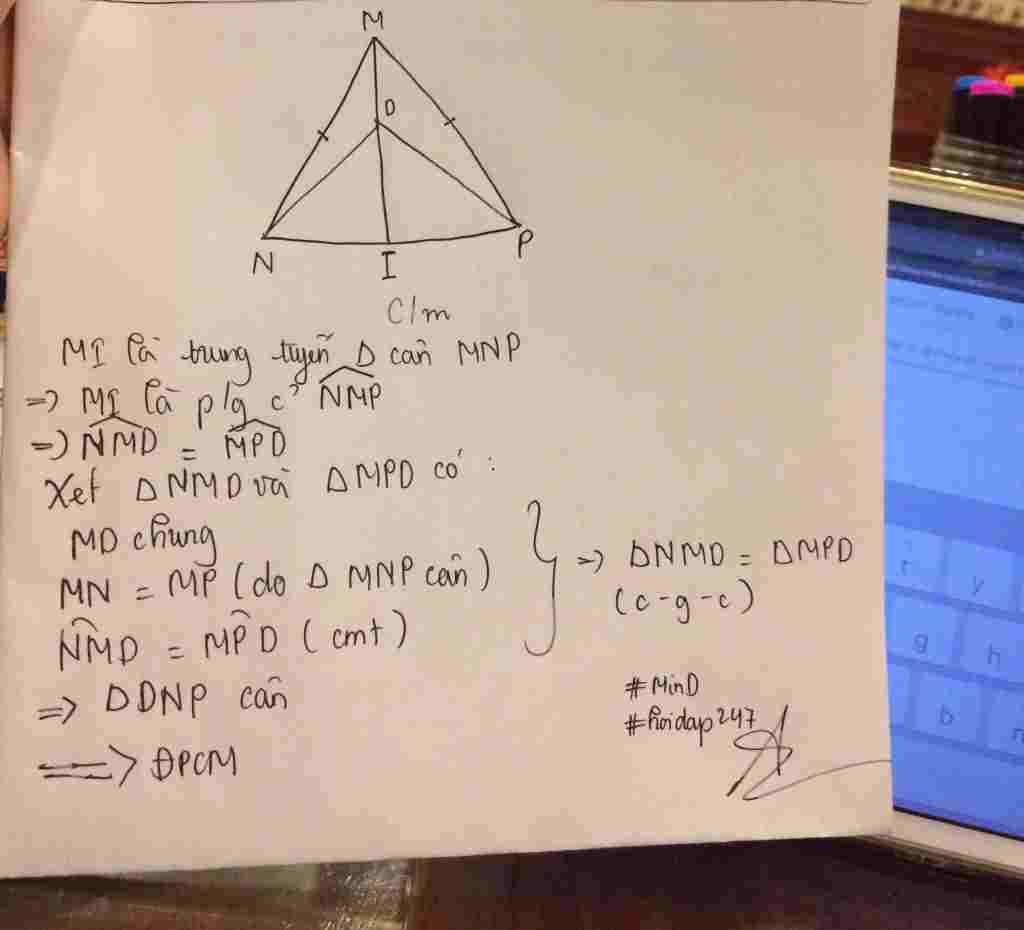 M
D
N
I
P
C/m
MI là trung tuyến Δ cân MNP
=> MI là p/g củ NMP
=> NMD = MPD
Xét Δ NMD và Δ MPD có :
MD chung
MN = MP (do Δ MNP cân)
NMD = MPD (cmt)
=> ΔNMD = ΔMPD
(c-g-c)
=> ΔDNP cân
=> ĐPCM
#MinD
#hoidap247
r
y
g
h
b
n